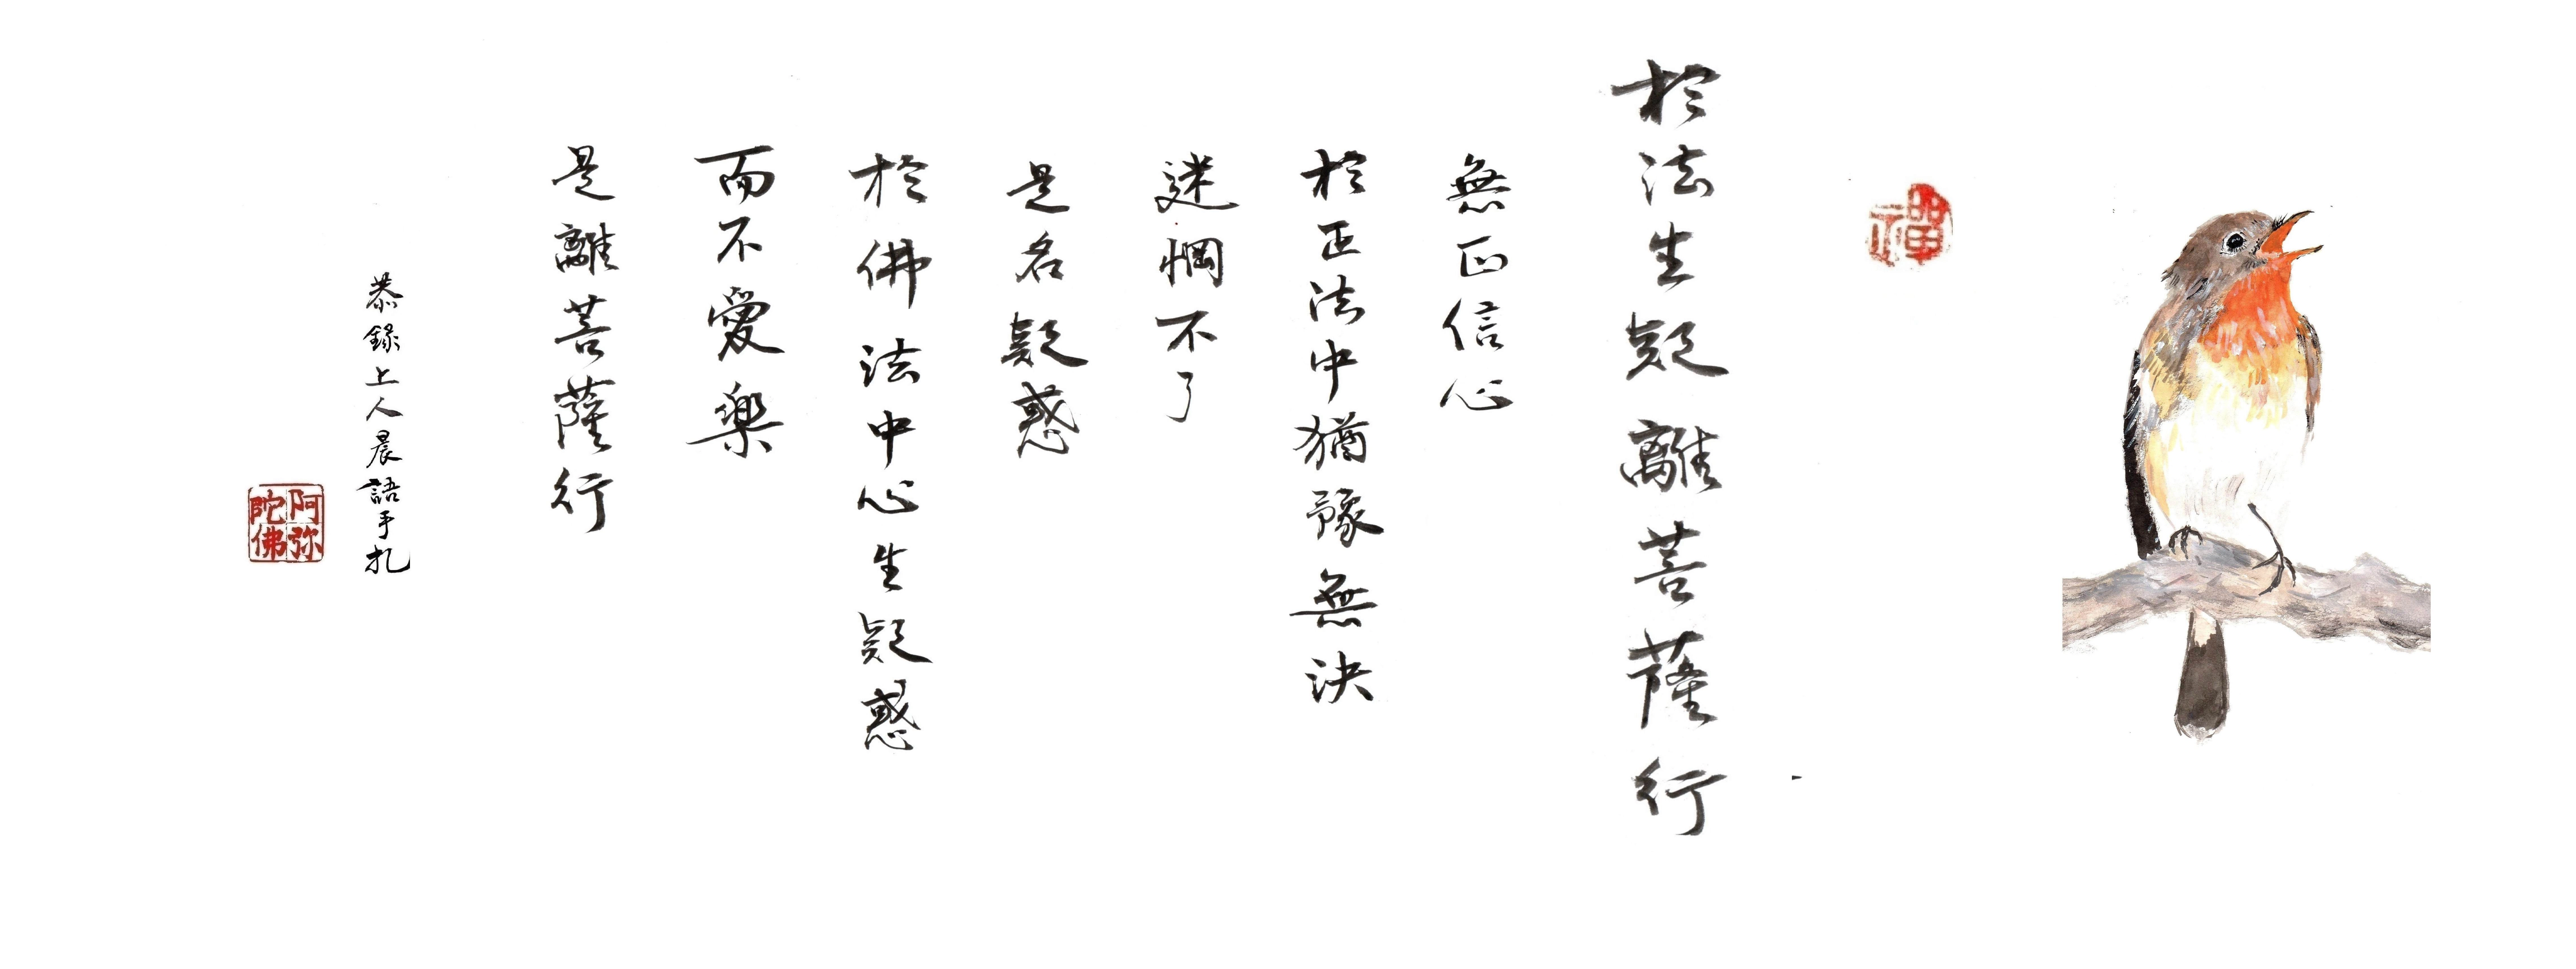 禪
於法生疑離菩薩行
無正信心
於正法中猶豫無決
迷惘不了
是名疑惑
於佛法中心生疑惑
而不愛樂
是離菩薩行
恭錄上人晨語手札
阿弥
陀佛